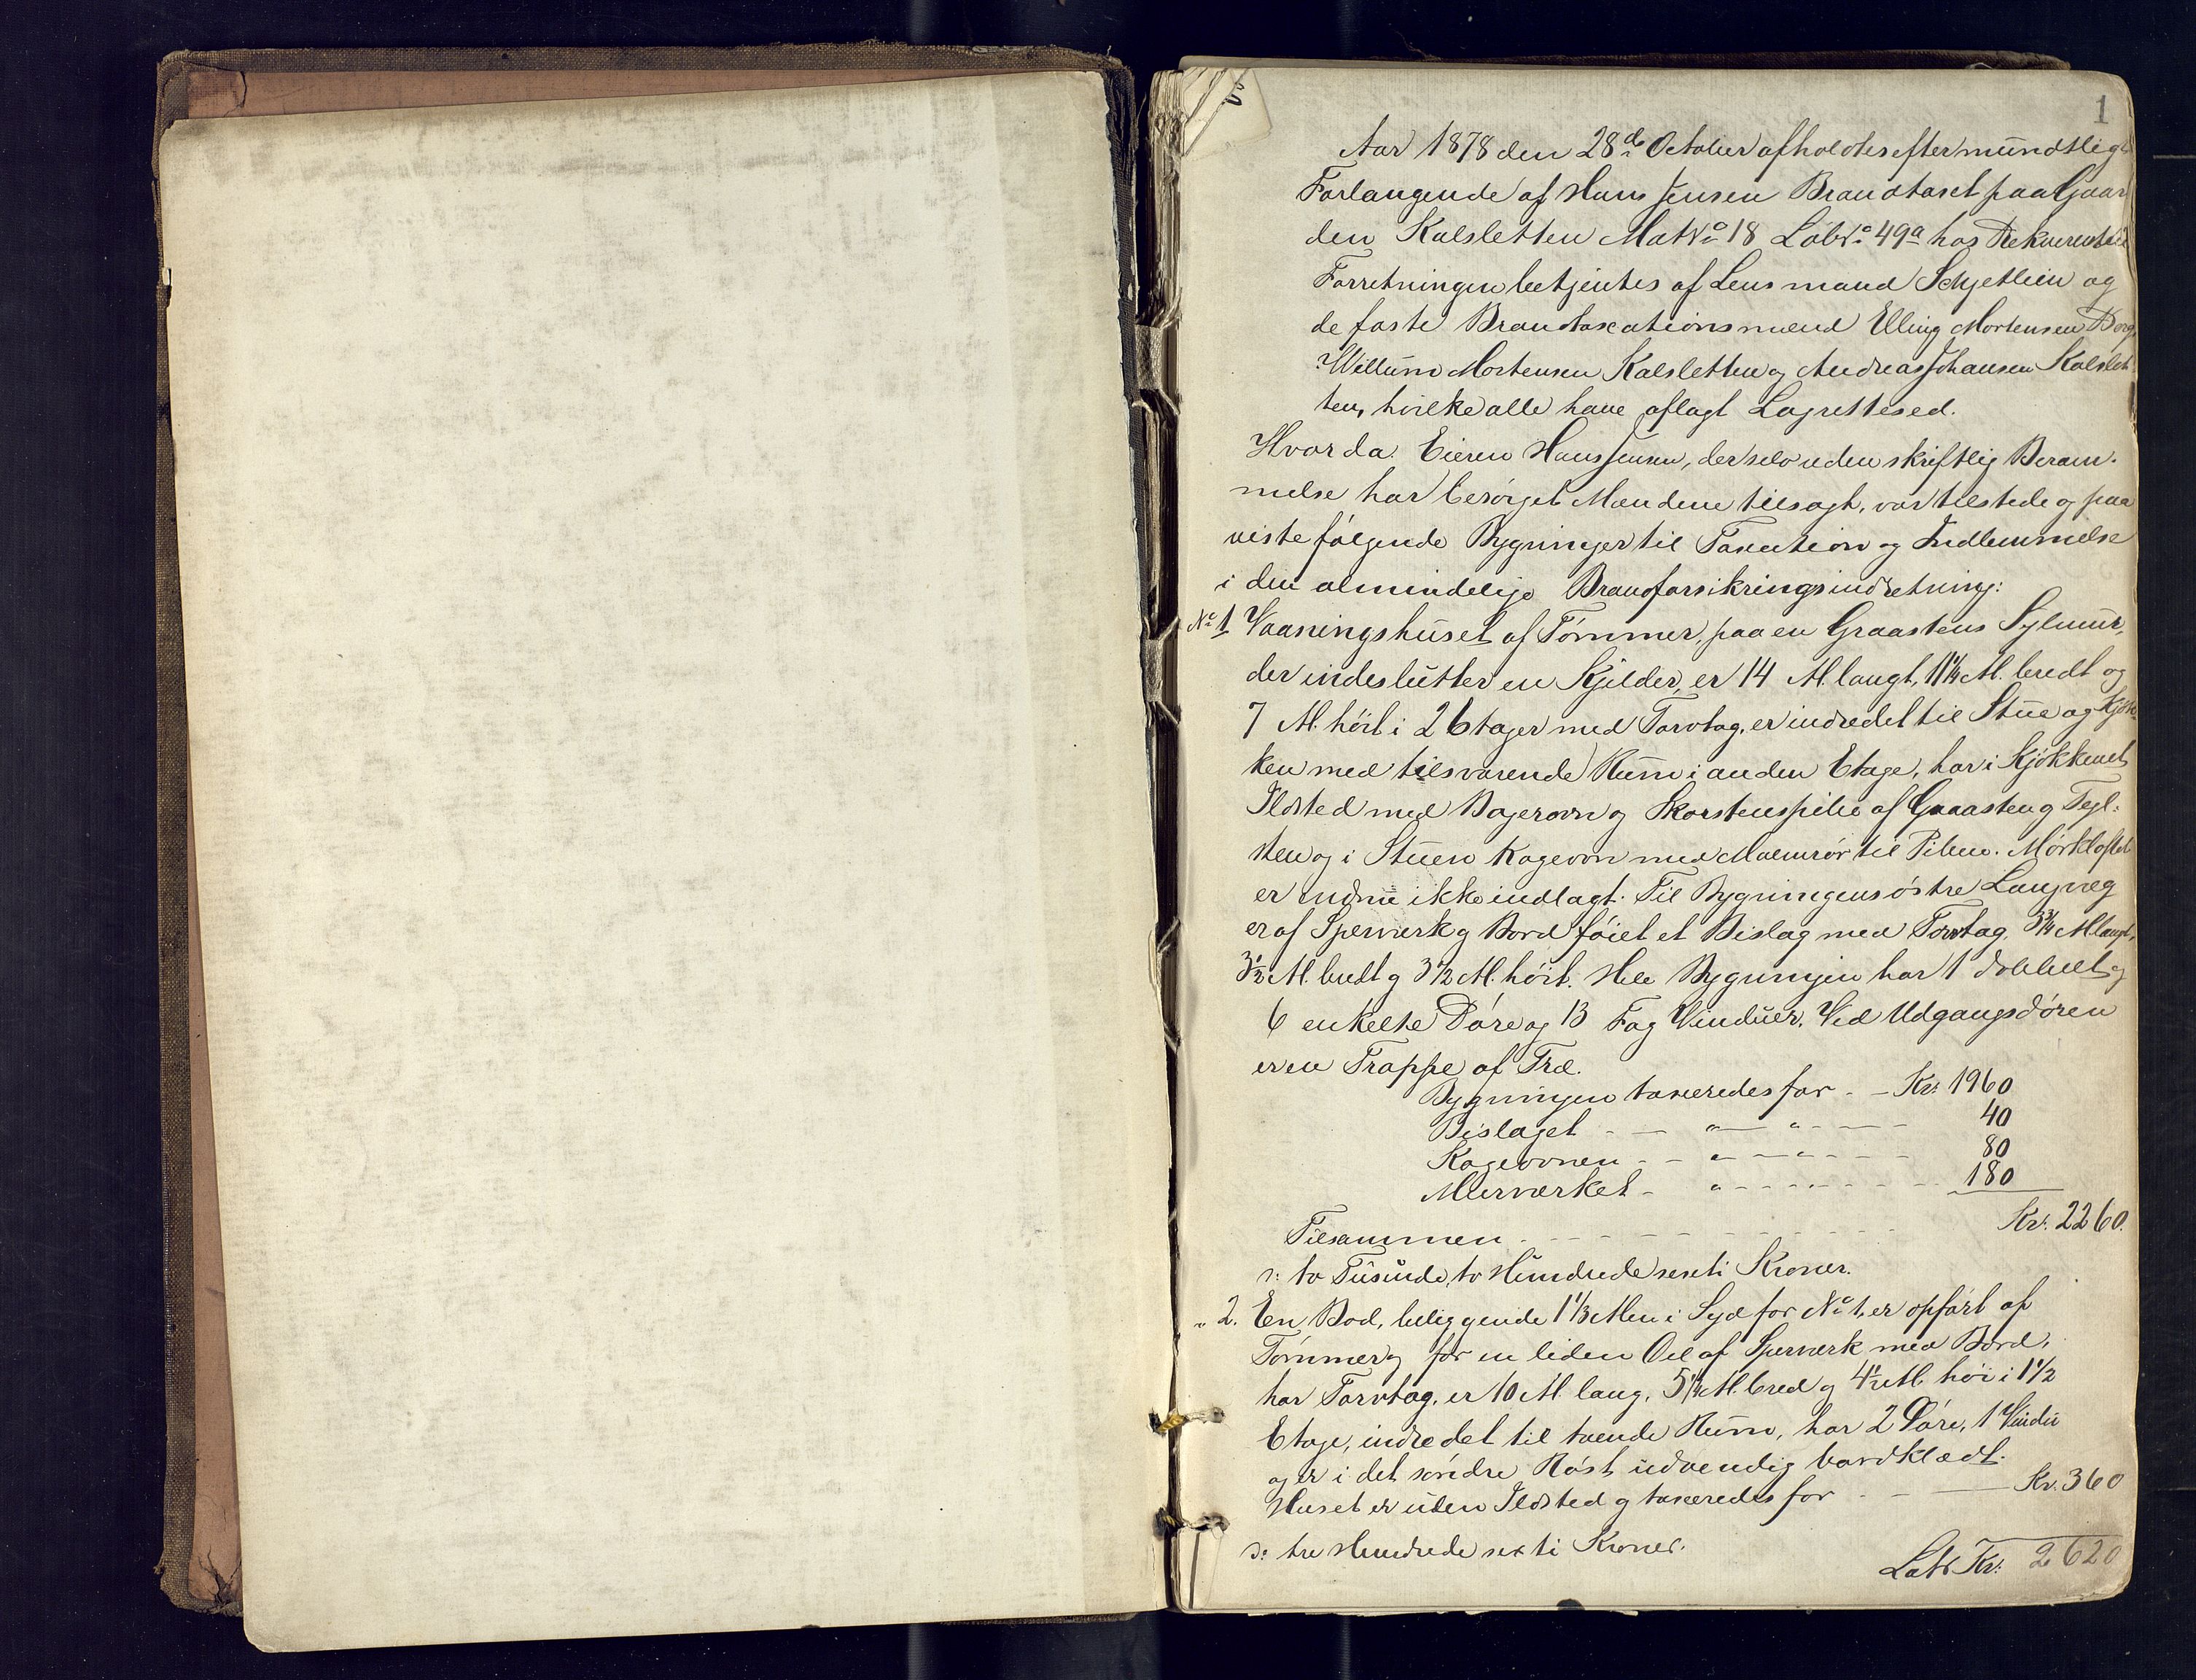 1
Aar 1878 den 28de October afholdtes efter mundtligt
Forlangende af Hans Jensen Brandtaxt paa Gaar
den Kalsletten Mat No 18 Løb No 49a hos Rekvirenten
Forretningen betjentes af Lensmand Schjetlein og
de faste Brandtaxationsmænd Elling Mortensen Berg,
Willum Mortensen Kalsletten og Andreas Johansen Kalslet
ten, hvilke alle have aflagt Lagrettesed.
Hvorda Eieren Hans Jensen, der selv uden skriftlig Beram-
melse har besørget Mændene tilsagt, var tilstede og paa
viste følgende Bygninger til Taxation og Indlemmelse
i den almindelige Brandforsikringsindretning:
No 1 Vaaningshuset af Tømmer, paa en Graastens Sylmur,
der indeslutter en Kjelder, er 14 Al. langt, 11 1/4 Al. bredt og
7 Al. høit i 2 Etager med Torvtag, er indredet til Stue og Kjøk-
ken med tilsvarende Rum i anden Etage, har i Kjøkkenet
Ildsted med Bagerovn og Skorstenspibe af Graasten og Tegl-
sten og i Stuen Kogeovn med Malmrør til Piben. Mørkloftet
er endnu ikke indlagt. Til Bygningens østre Langveg
er af Sperværk og Bord føiet et Bislag med Torvtag, 3 3/4 Al langt,
3 1/2 Al. bredt og 3 1/2 Al. høit. Hele Bygningen har 1 dobbelt og
6 enkelte Døre og 13 Fag Vinduer. Ved Udgangsdøren
er en Trappe af Træ.
Bygningen taxeredes for - - Kr. 1960
Bislaget - - " - " - - - 40
Kogeovnen - - " - " - - - 80
Murværket - " - - " - - - 180
Tilsammen - - - - - - Kr. 2260.
ɔ: to Tusinde, to Hundrede sexti Kroner.
" 2. En Bod, beliggende 1 1/3 Alen i Syd for No 1, er opført af
Tømmer og for en liden Del af Sperværk med Bord,
har Torvtag, er 10 Al. lang, 5 1/4 Al. bred og 4 1/2 Al. høi i 1 1/2
Etage, indredet til tvende Rum, har 2 Døre, 1 Vindu
og er i det søndre Røst udvendig bordklædt.
Huset er uden Ildsted og taxeredes for - - Kr. 360
ɔ: tre Hundrede sexti Kroner.
Lats Kr: 2620